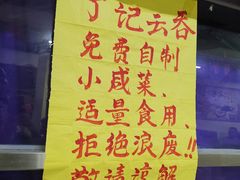 丁记云吞
免费自制
小咸菜、
适量食用、
拒绝浪废!!
敬请谅解